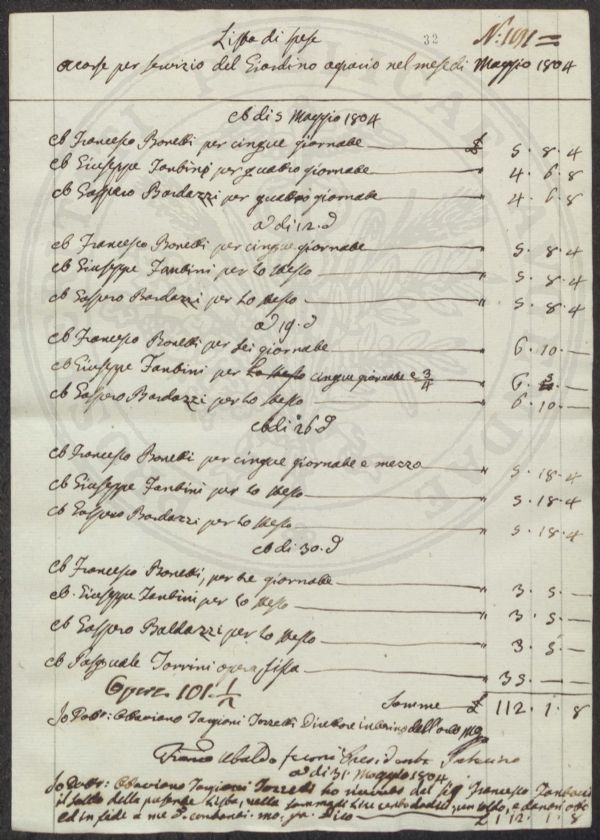 32
N: 101 =
Lista di spese
occorse per servizio del Giardino agrario nel mese di Maggio 1804
A di 5 Maggio 1804
A Francesco Bonelli per cinque giornate £ 5. 8. 4
A Giuseppe Fantini per quattro giornate " 4. 6. 8
A Gaspero Bardazzi per quattro giornate " 4. 6. 8
a di 12. d
A Francesco Bonelli per cinque giornate " 5. 8. 4
A Giuseppe Fantini per lo stesso " 5. 8. 4
A Gaspero Bardazzi per lo stesso " 5. 8. 4
a di 19. d
A Francesco Bonelli per sei giornate " 6. 10. —
A Giuseppe Fantini per lo stesso cinque giornate e 3/4 " 6. 5. —
A Gaspero Bardazzi per lo stesso " 6. 10. —
A di 26 d
A Francesco Bonelli per cinque giornate e mezzo " 5. 18. 4
A Giuseppe Fantini per lo stesso " 5. 18. 4
A Gaspero Bardazzi per lo stesso " 5. 18. 4
A di 30. d
A Francesco Bonelli, per tre giornate " 3. 5. —
A Giuseppe Fantini per lo stesso " 3. 5. —
A Gaspero Baldazzi per lo stesso " 3. 5. —
A Pasquale Torrini opera fissa " 35. — —
Opere 101 1/2
Somma £ 112. 1. 8
Io Dott: Ottaviano Targioni Tozzetti Direttore interino dell'orto
Ubaldo Feroni Presidente
a di 31 Maggio 1804
Io Dott: Ottaviano Targioni Tozzetti ho ricevuto dal Sig Francesco
il saldo della presente lista, nella somma di Lire cento dodici, un soldo, e danari otto
ed in fede a me d. contanti. mo. pa. Dico £ 112. 1. 8